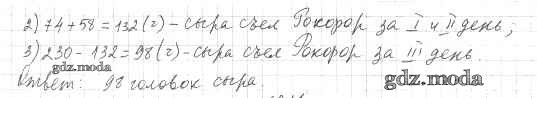 2) 74+58=132(г)-сыра съел Рокфор за I и II день;
3) 230-132=98(г)-сыра съел Рокфор за III день.
gdz.moda
Ответ: 98 головок сыра.
gdz.moda